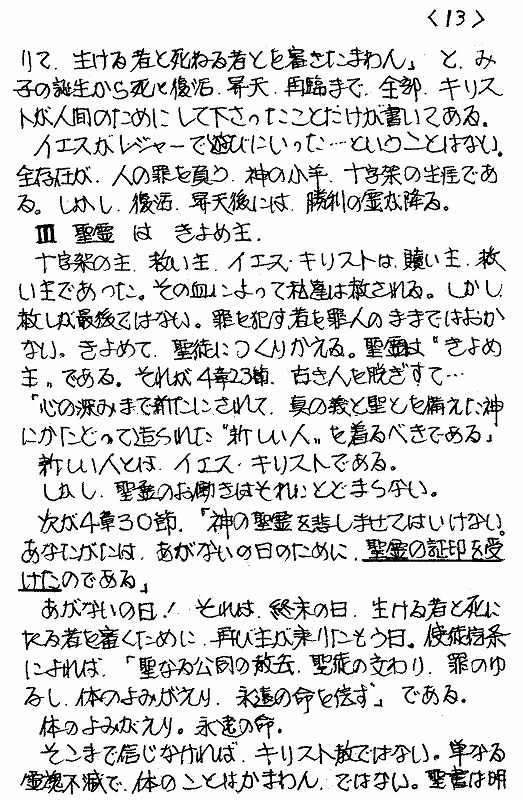 <13>
りて、生ける者と死ねる者とを審きたまわん」と、み
子の誕生から死と復活、昇天、再臨まで、全部、キリス
トが人間のためにして下さったことだけが書いてある。
イエスがレジャーで遊びにいった…ということはない。
全存在が、人の罪を負う、神の小羊、十字架の生涯であ
る。しかし、復活、昇天後には、勝利の霊が降る。
Ⅲ 聖霊 は きよめ主、
十字架の主、救い主、イエス・キリストは、贖い主、救
い主であった。その血によって私達は赦される。しかし
赦しが最後ではない。罪を犯す者を罪人のままではおか
ない。きよめて、聖徒につくりかえる。聖霊は"きよめ
主"である。それが4章23節、古き人を脱ぎすて…
「心の深みまで新たにされて、真の義と聖とを備えた神
にかたどって造られた"新しい人"を着るべきである」
新しい人とは、イエス・キリストである。
しかし、聖霊のお働きはそれにとどまらない。
次が4章30節、「神の聖霊を悲しませてはいけない。
あなたがたは、あがないの日のために、聖霊の証印を受
けたのである」
あがないの日！それは、終末の日、生ける者と死に
たる者を審くために、再び主が来りたもう日。使徒信条
によれば、「聖なる公同の教会、聖徒の交わり、罪のゆ
るし、体のよみがえり、永遠の命を信ず」である。
体のよみがえり。永遠の命。
そこまで信じなければ、キリスト教ではない。単なる
霊魂不滅で、体のことはかまわん、ではない。聖書は明